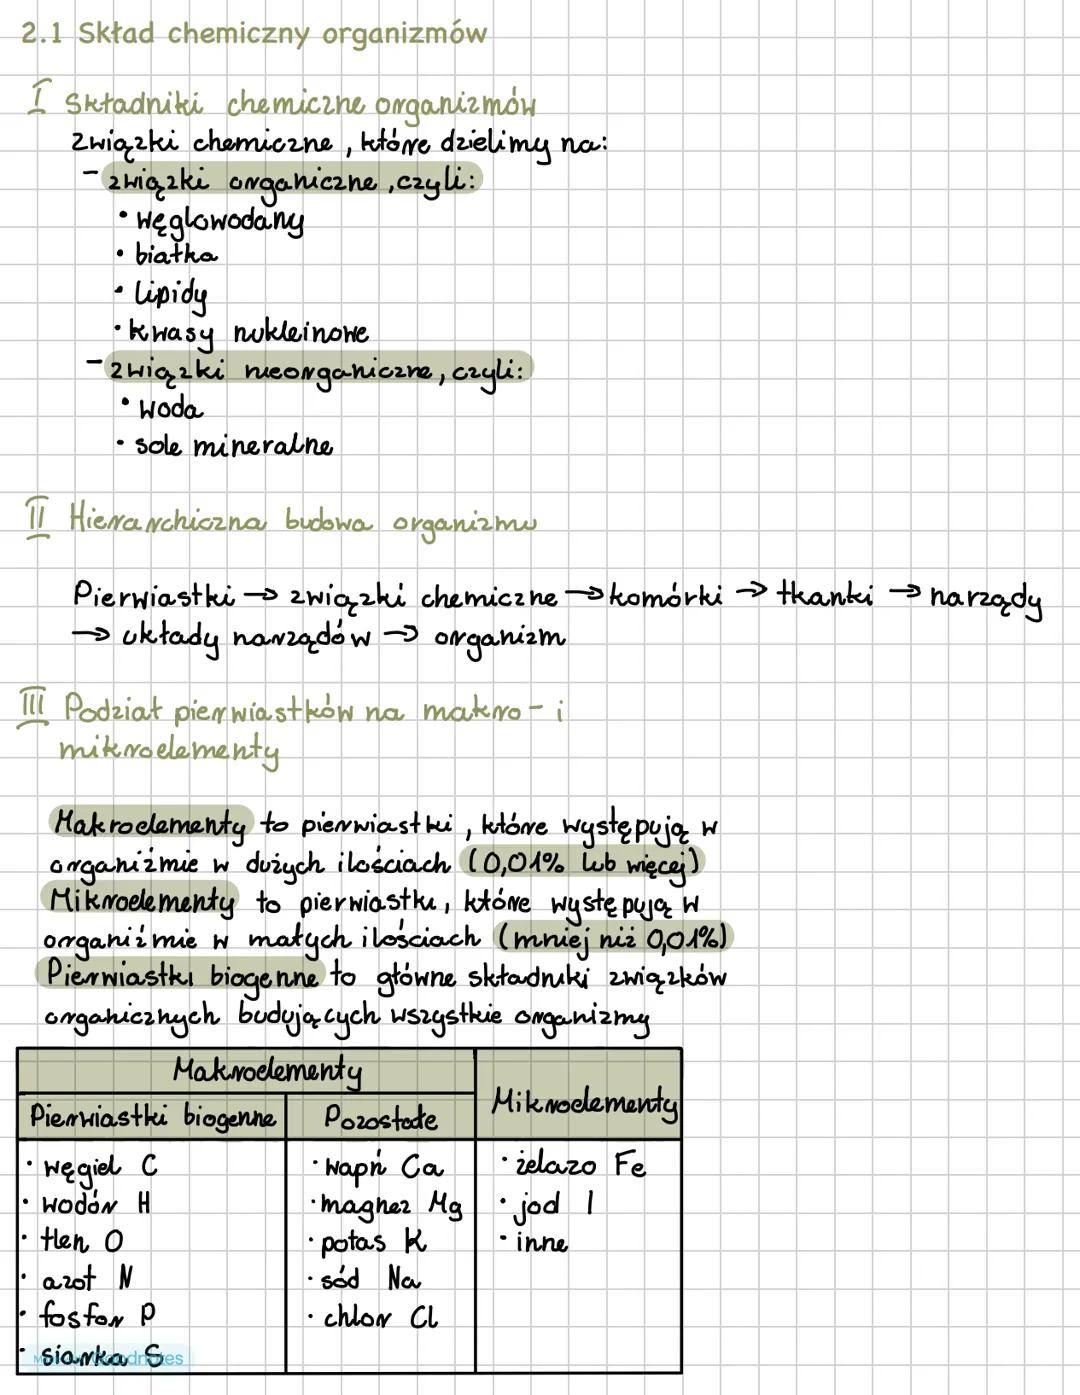 2.1 Skład chemiczny organizmów
I Składniki chemiczne organizmów
Związki chemiczne, które dzielimy na:
- związki organiczne, czyli:
• węglowodany
• białka
• lipidy
• kwasy nukleinowe
- związki nieorganiczne, czyli:
• woda
• sole mineralne
II Hierarchiczna budowa organizmu
Pierwiastki → związki chemiczne → komórki → tkanki → narządy
→ układy narządów → organizm
III Podział pierwiastków na makro- i
mikroelementy
Makroelementy to pierwiastki, które występują w
organiźmie w dużych ilościach (0,01% lub więcej)
Mikroelementy to pierwiastki, które występują w
organiźmie w małych ilościach (mniej niż 0,01%)
Pierwiastki biogenne to główne składniki związków
organicznych budujących wszystkie organizmy
Makroelementy
Mikroelementy
Pierwiastki biogenne Pozostałe
• węgiel C • wapń Ca • żelazo Fe
• wodór H • magnez Mg • jod I
• tlen O • potas K • inne
• azot N • sód Na
• fosfor P • chlor Cl
• siarka S
Goodnotes